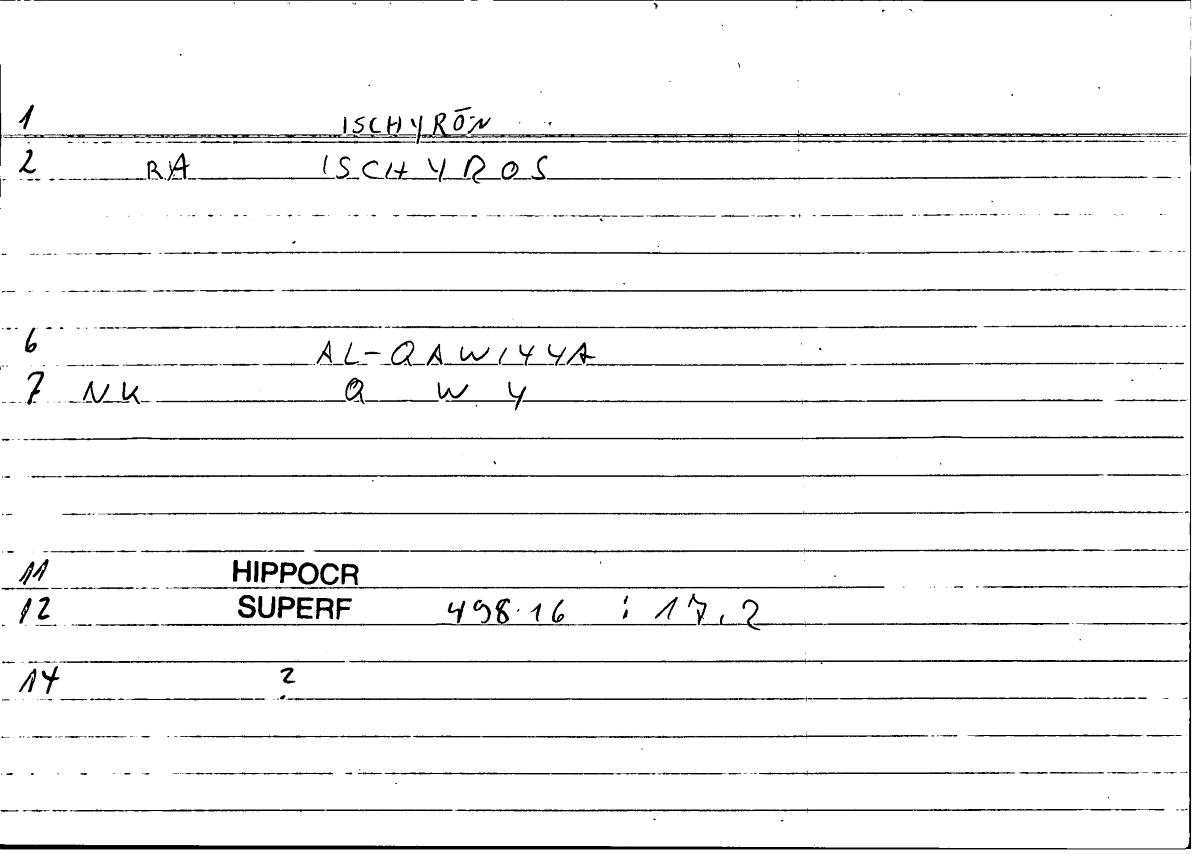 1 ISCHYRŌN
2 RA ISCHYROS
6 AL-QAWIYYA
7 NK Q W Y
11 HIPPOCR
12 SUPERF 498.16 : 17.2
14 ?